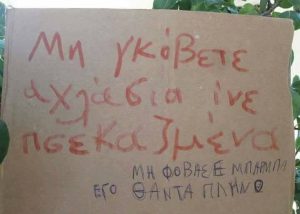 Μη γκόβετε
αχλάσια ίνε
πσεκαζμένα
ΜΗ ΦΟΒΑΣΕ ΜΠΑΡΜΠΑ
ΕΓΟ ΘΑΝΤΑ ΠΛΗΝΟ